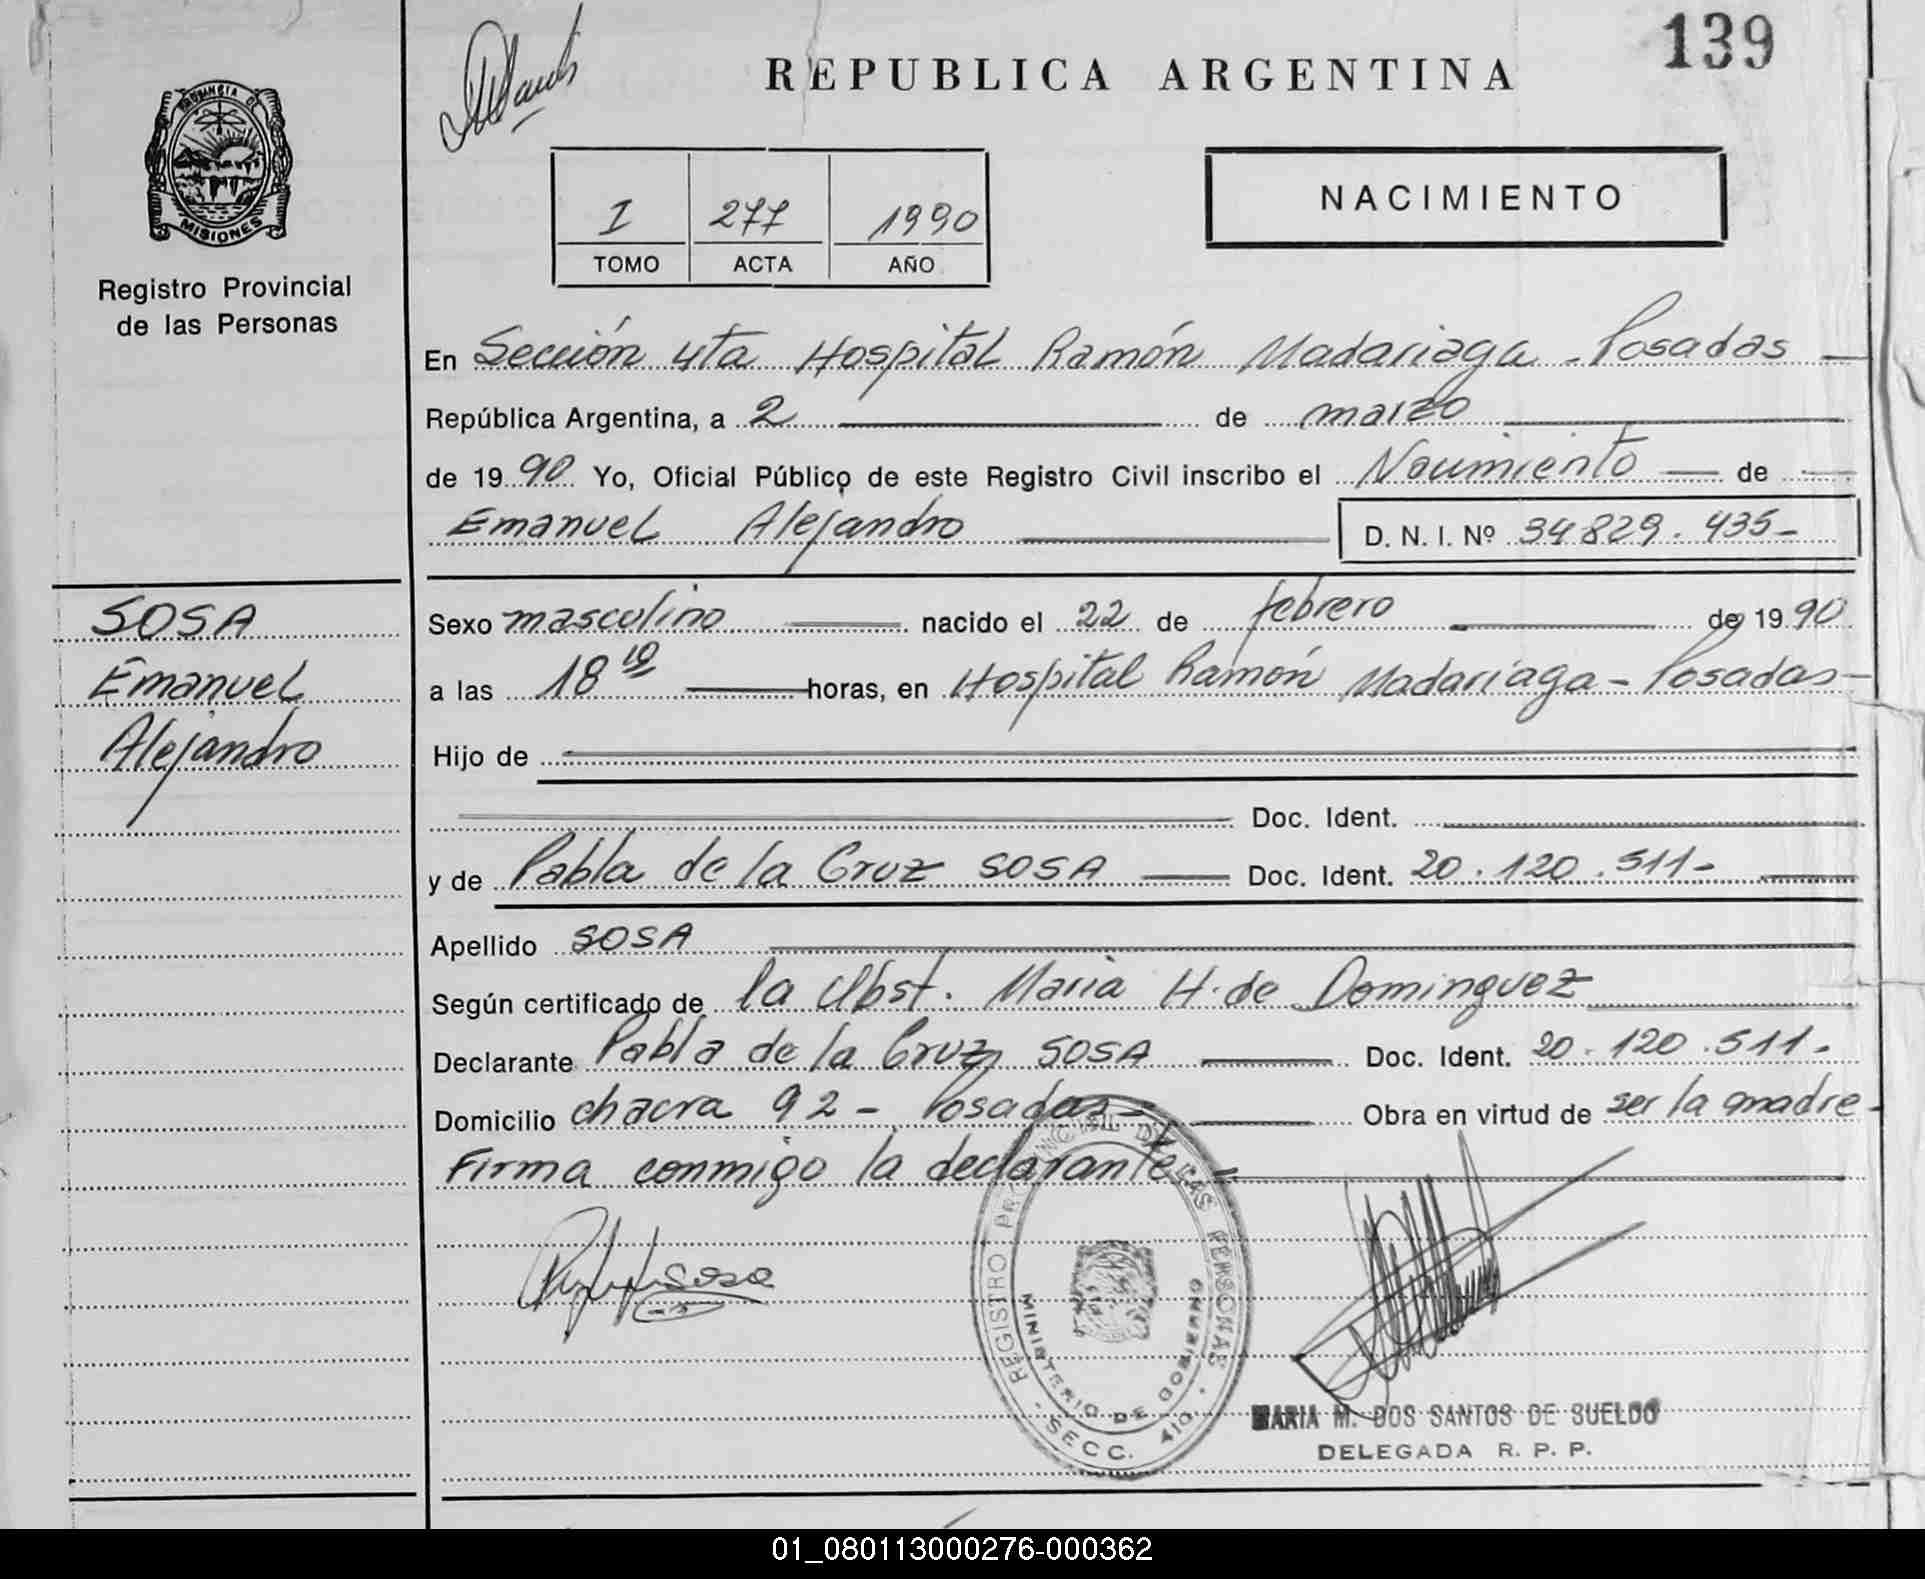 139
REPUBLICA ARGENTINA
PROVINCIA DE
MISIONES
Registro Provincial
de las Personas
NACIMIENTO
I 277 1990
TOMO ACTA AÑO
En Sección 4ta Hospital Ramón Madariaga - Posadas
República Argentina, a 2 de marzo
de 1990 Yo, Oficial Público de este Registro Civil inscribo el Nacimiento de
Emanuel Alejandro D. N. I. Nº 34.829.435-
SOSA
Emanuel
Alejandro
Sexo masculino nacido el 22 de febrero de 1990
a las 18 10 horas, en Hospital Ramón Madariaga - Posadas -
Hijo de
Doc. Ident.
y de Pabla de la Cruz SOSA Doc. Ident. 20.120.511-
Apellido SOSA
Según certificado de la Obst. Maria H. de Dominguez
Declarante Pabla de la Cruz SOSA Doc. Ident. 20.120.511-
Domicilio chacra 92 - Posadas - Obra en virtud de ser la madre -
Firma conmigo la declarante -
Sosa
REGISTRO PROVINCIAL DE LAS PERSONAS
MINISTERIO DE GOBIERNO
SECC. 4TO.
MARIA M. DOS SANTOS DE SUELDO
DELEGADA R. P. P.
01_080113000276-000362